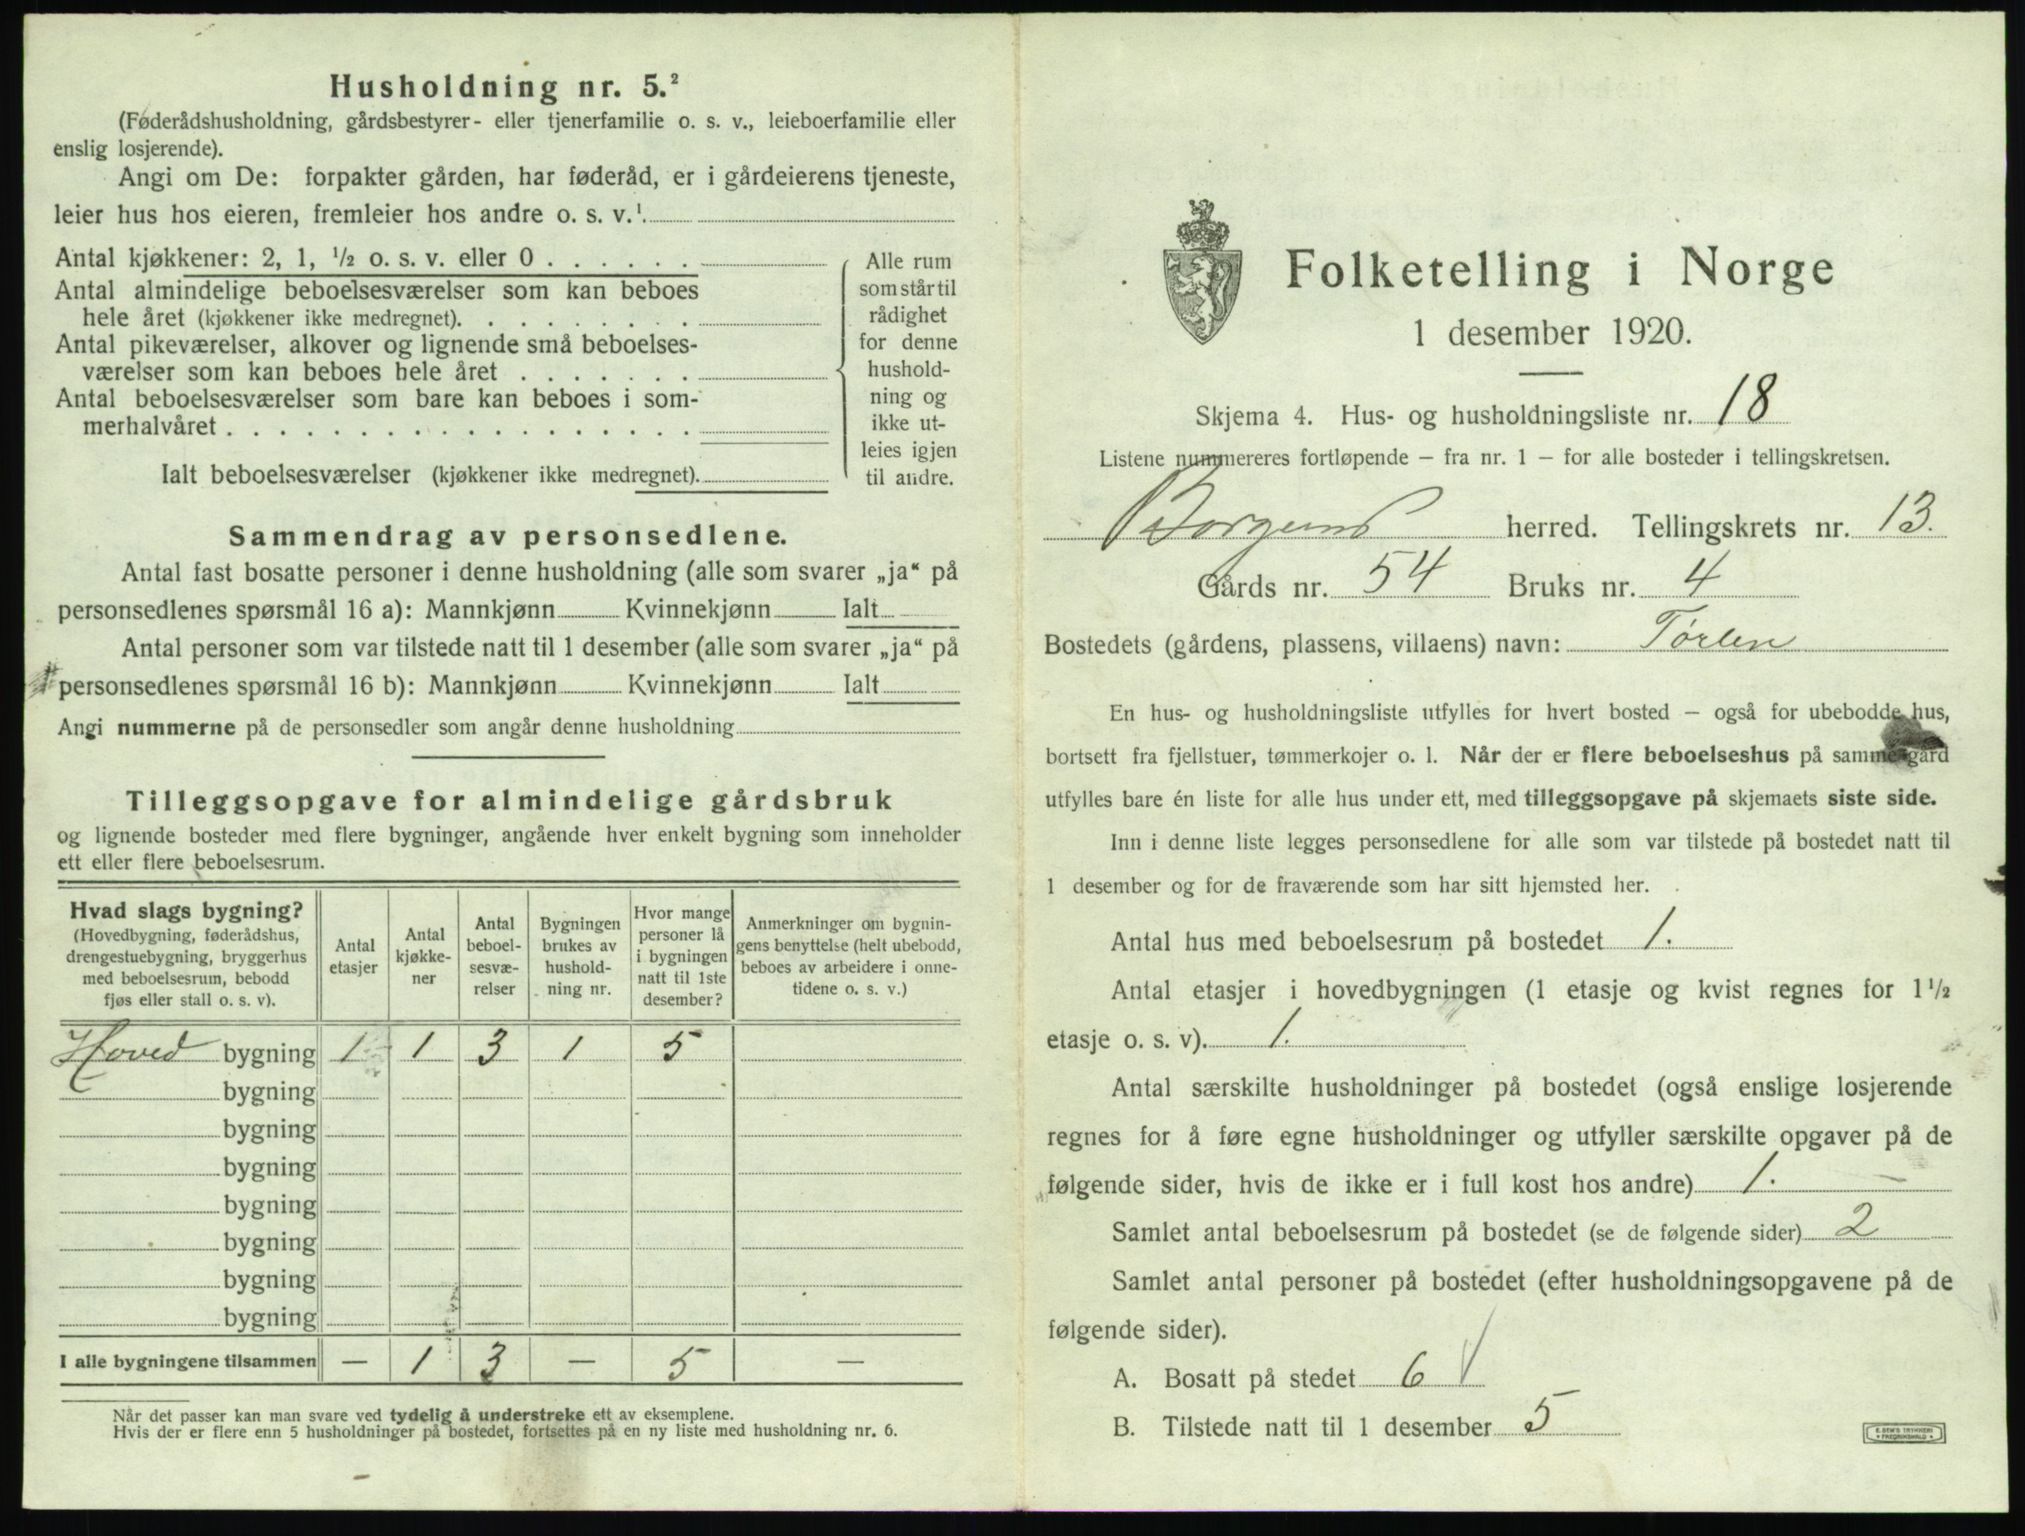 Husholdning nr. 5.²
(Føderådshusholdning, gårdsbestyrer- eller tjenerfamilie o. s. v., leieboerfamilie eller
enslig losjerende).
Angi om De: forpakter gården, har føderåd, er i gårdeierens tjeneste,
leier hus hos eieren, fremleier hos andre o. s. v.¹
Antal kjøkkener: 2, 1, ½ o. s. v. eller 0 . . . . . .
Antal almindelige beboelsesværelser som kan beboes
hele året (kjøkkener ikke medregnet). . . . . . . . .
Antal pikeværelser, alkover og lignende små beboelses-
værelser som kan beboes hele året . . . . . . .
Antal beboelsesværelser som bare kan beboes i som-
merhalvåret . . . . . . . . . . . . . . . . . .
Ialt beboelsesværelser (kjøkkener ikke medregnet).
Alle rum
som står til
rådighet
for denne
hushold-
ning og
ikke ut-
leies igjen
til andre.
Sammendrag av personsedlene.
Antal fast bosatte personer i denne husholdning (alle som svarer „ja“ på
personsedlenes spørsmål 16 a): Mannkjønn Kvinnekjønn Ialt
Antal personer som var tilstede natt til 1 desember (alle som svarer „ja“ på
personsedlenes spørsmål 16 b): Mannkjønn Kvinnekjønn Ialt
Angi nummerne på de personsedler som angår denne husholdning
Tilleggsopgave for almindelige gårdsbruk
og lignende bosteder med flere bygninger, angående hver enkelt bygning som inneholder
ett eller flere beboelsesrum.
Hvad slags bygning?
(Hovedbygning, føderådshus,
drengestuebygning, bryggerhus
med beboelsesrum, bebodd
fjøs eller stall o. s. v).
Antal
etasjer
Antal
kjøkke-
ner
Antal
beboel-
sesvæ-
relser
Bygningen
brukes av
hushold-
ning nr.
Hvor mange
personer lå
i bygningen
natt til 1ste
desember?
Anmerkninger om bygnin-
gens benyttelse (helt ubebodd,
beboes av arbeidere i onne-
tidene o. s. v.)
Hoved bygning 1 1 3 1 5
bygning
bygning
bygning
bygning
bygning
bygning
bygning
I alle bygningene tilsammen — 1 3 — 5 —
Når det passer kan man svare ved tydelig å understreke ett av eksemplene.
Hvis der er flere enn 5 husholdninger på bostedet, fortsettes på en ny liste med husholdning nr. 6.
Folketelling i Norge
1 desember 1920.
Skjema 4. Hus- og husholdningsliste nr. 18
Listene nummereres fortløpende – fra nr. 1 – for alle bosteder i tellingskretsen.
Borgund herred. Tellingskrets nr. 13.
Gårds nr. 54 Bruks nr. 4
Bostedets (gårdens, plassens, villaens) navn: Tørlen
En hus- og husholdningsliste utfylles for hvert bosted – også for ubebodde hus,
bortsett fra fjellstuer, tømmerkojer o. l. Når der er flere beboelseshus på samme gård
utfylles bare én liste for alle hus under ett, med tilleggsopgave på skjemaets siste side.
Inn i denne liste legges personsedlene for alle som var tilstede på bostedet natt til
1 desember og for de fraværende som har sitt hjemsted her.
Antal hus med beboelsesrum på bostedet 1.
Antal etasjer i hovedbygningen (1 etasje og kvist regnes for 1½
etasje o. s. v). 1.
Antal særskilte husholdninger på bostedet (også enslige losjerende
regnes for å føre egne husholdninger og utfyller særskilte opgaver på de
følgende sider, hvis de ikke er i full kost hos andre) 1.
Samlet antal beboelsesrum på bostedet (se de følgende sider) 2
Samlet antal personer på bostedet (efter husholdningsopgavene på de
følgende sider).
A. Bosatt på stedet 6
B. Tilstede natt til 1 desember 5
E. SEM'S TRYKKERI
• FREDRIKSHALD •